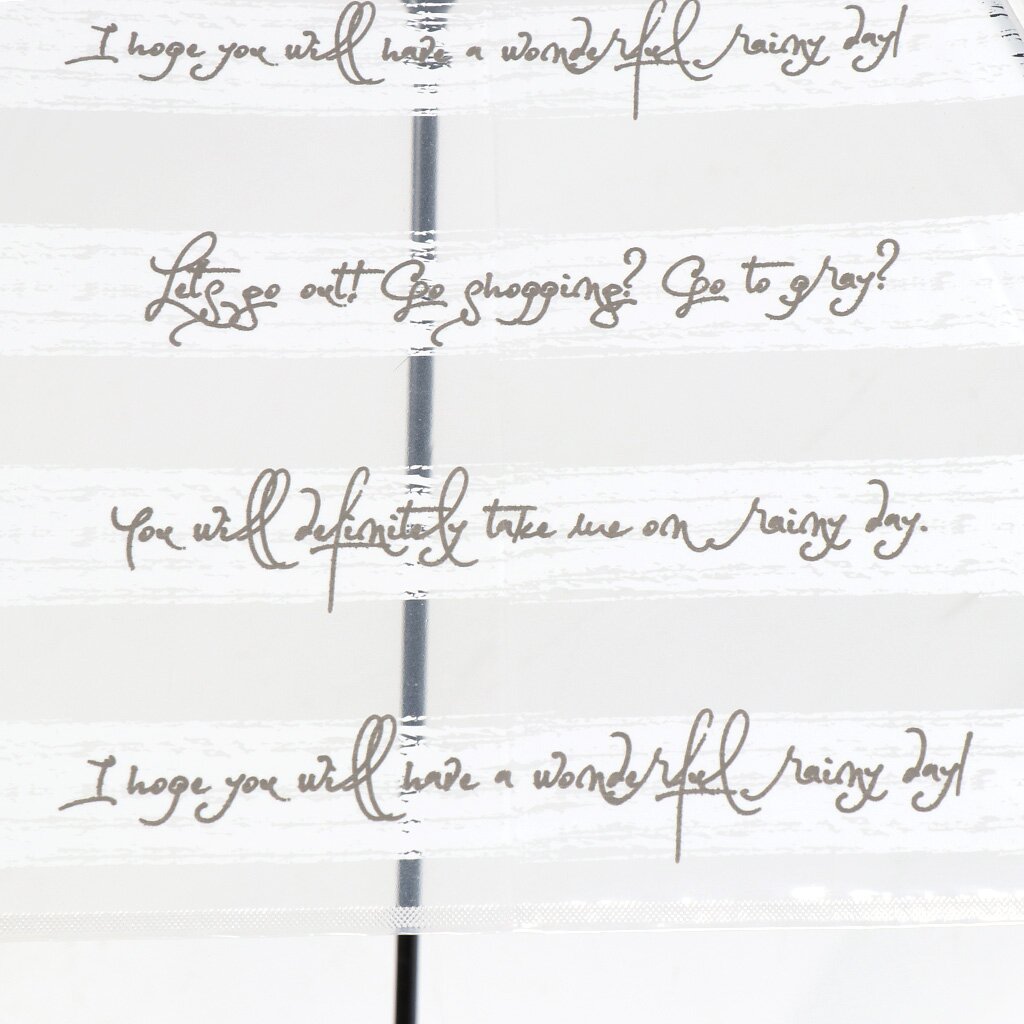 I hope you will have a wonderful rainy day!
Let's go out! Go shopping? Go to pray?
You will definitely take me on rainy day.
I hope you will have a wonderful rainy day!